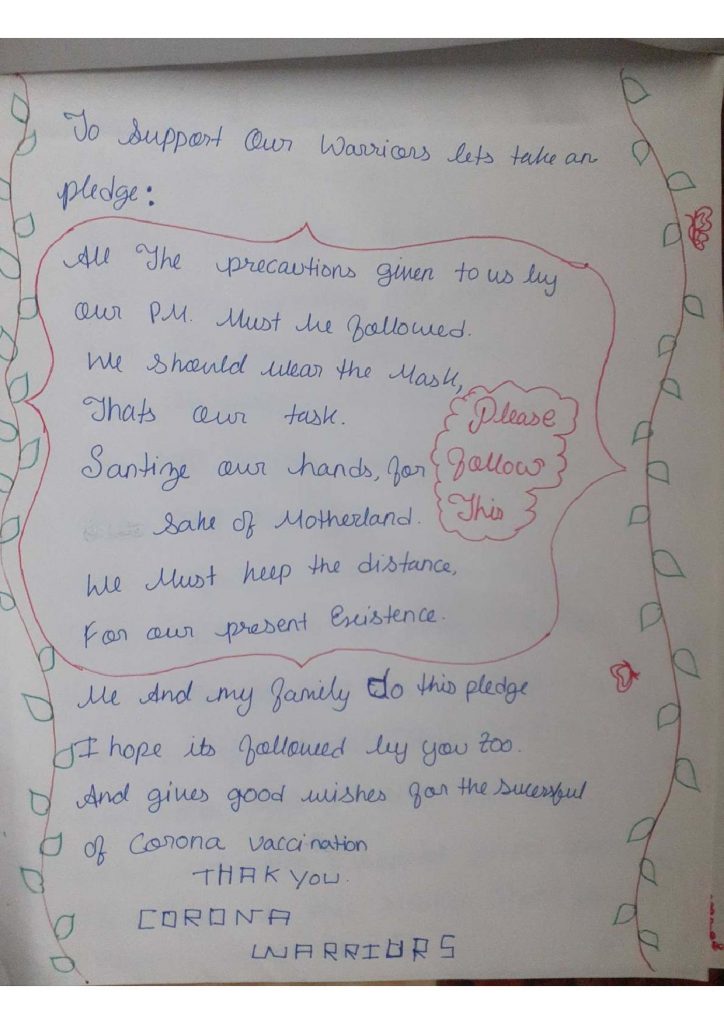 To Support Our Warriors lets take an
pledge:
All The precautions given to us by
our P.M. Must be followed.
We should wear the Mask,
Thats our task.
Santize our hands, for
sake of Motherland.
We Must keep the distance,
For our present Existence.
Please
follow
This
Me And my family do this pledge
I hope its followed by you too.
And gives good wishes for the sucessful
of Corona vaccination
THAK YOU.
CORONA
WARRIORS